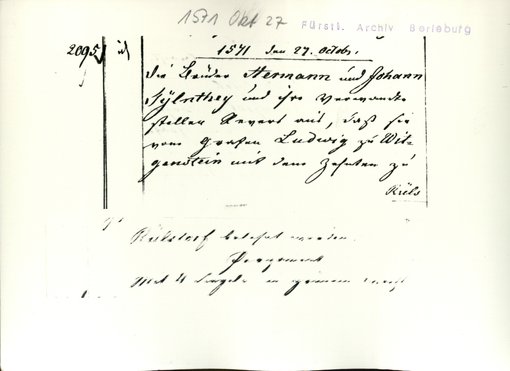 1571 Okt 27
Fürstl. Archiv Berleburg
2095
1571 den 27. Octobr.
Die Brüder Hermann und Johann
und ihre Verwandte
stellen Revers aus, daß sie
vom Grafen Ludwig zu Wit-
genstein mit dem Zehnten zu
belehnt worden.
Pergament
Mit 4 Siegeln in grünem